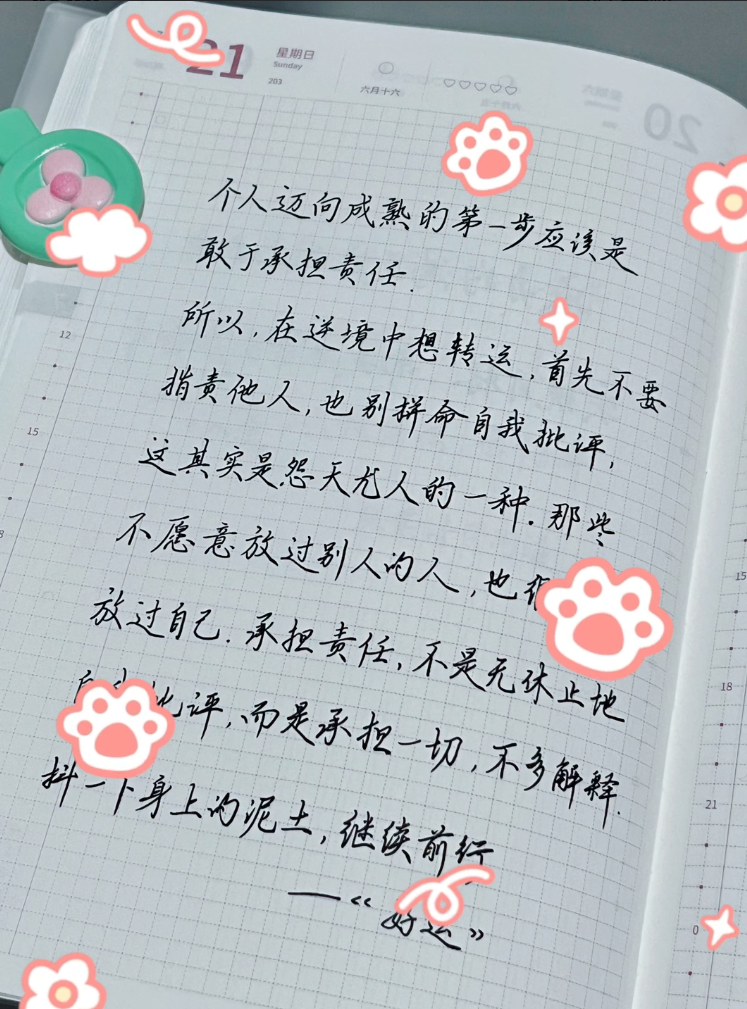 21
星期日
Sunday
203
六月十六
20
个人迈向成熟的第一步应该是
敢于承担责任.
所以,在逆境中想转运,首先不要
指责他人,也别拼命自我批评,
这其实是怨天尤人的一种.那些
不愿意放过别人的人,也
放过自己.承担责任,不是无休止地
批评,而是承担一切,不多解释.
抖一下身上的泥土,继续前行
——《好运》
12
15
15
18
21
0